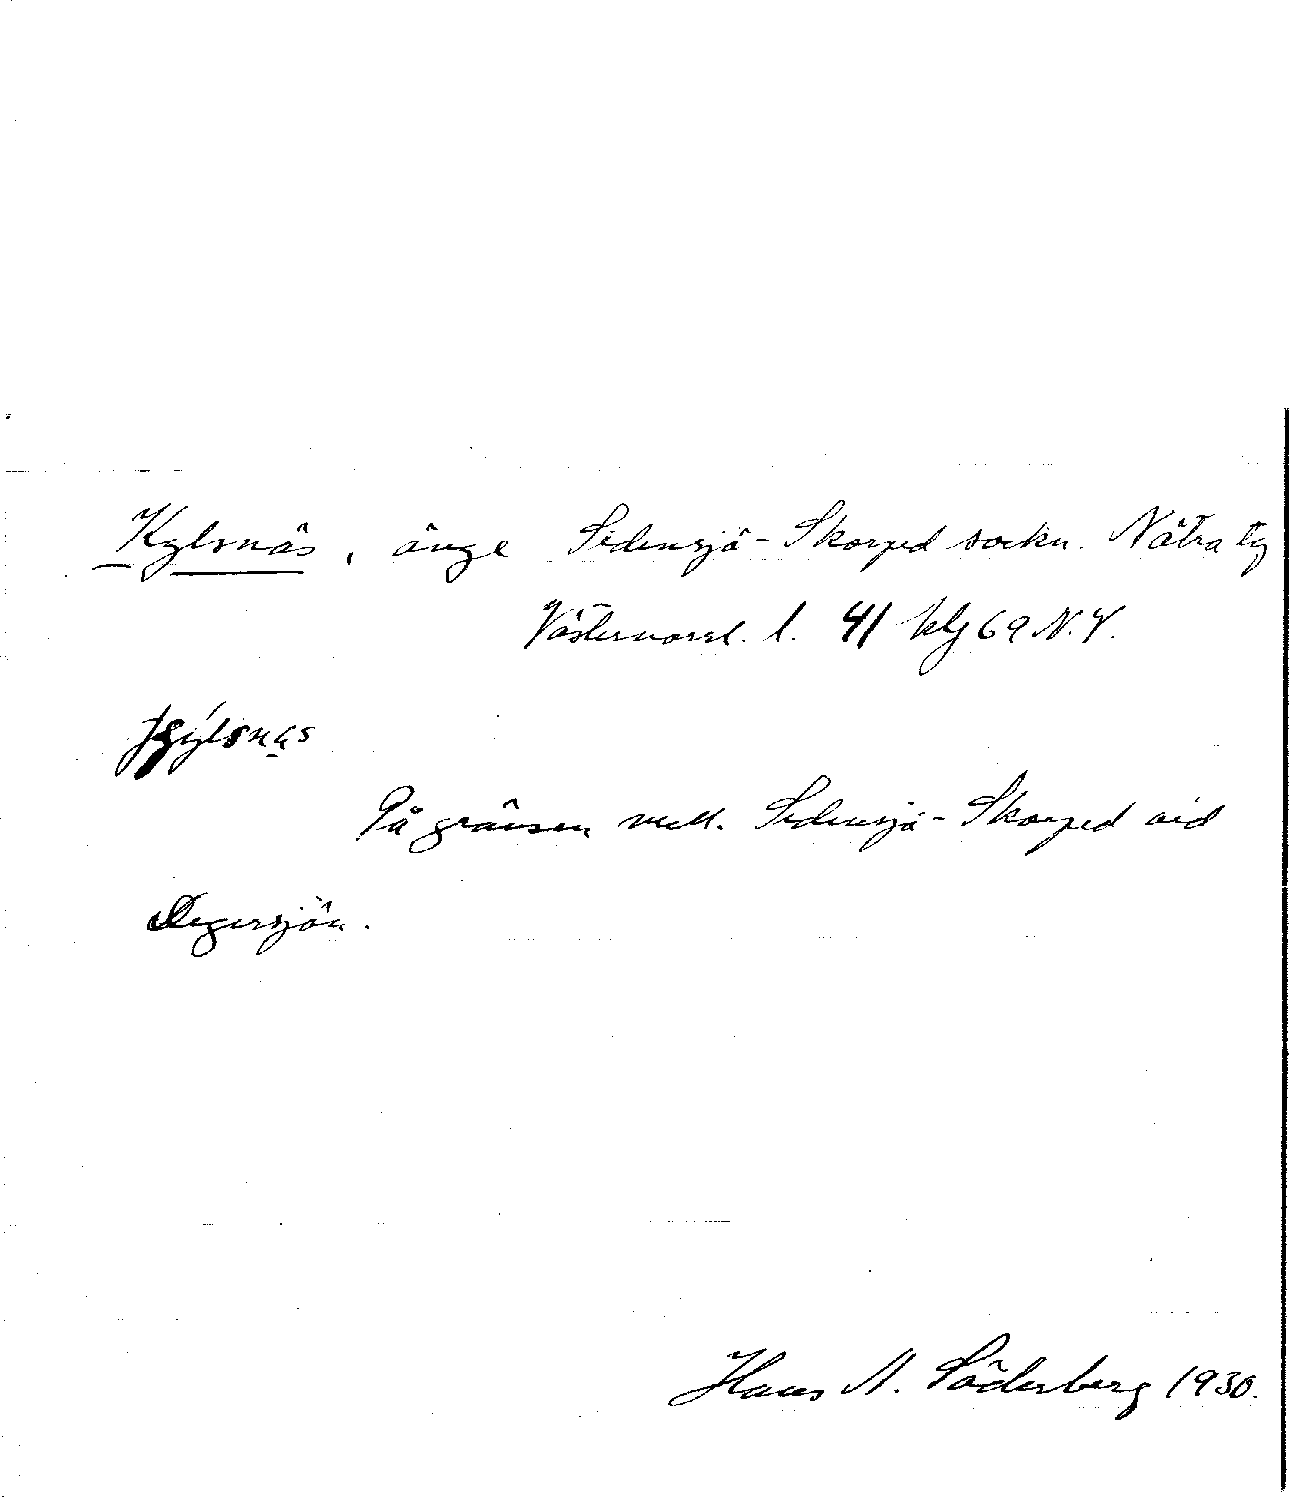 Kylsnäs, änge Sidensjö-Skorped sockn. Nätra tg
Västernorrl. l. 41 klg 69 N.V.
På gränsen mell. Sidensjö-Skorped vid
Degersjön.
Hans N. Söderberg 1930.